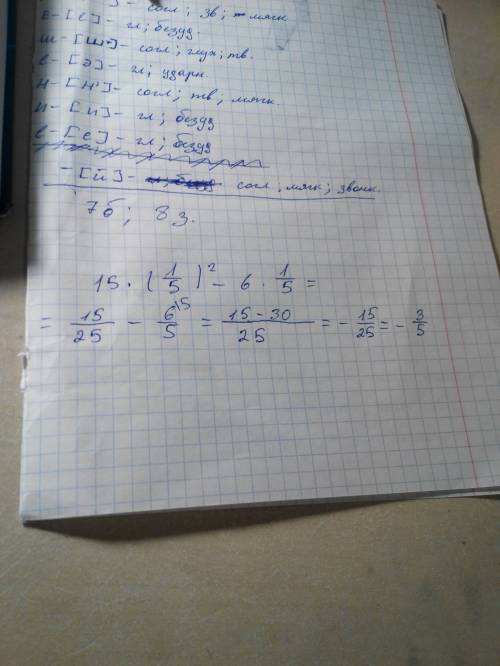 ] - согл; зв; - мягк
е - [е] - гл; безуд.
ш - [ш] - согл; глух; тв.
е - [э] - гл; ударн.
н - [н'] - согл; тв, мягк.
и - [и] - гл; безуд
е - [е] - гл; безуд
- [й] - согл, мягк; звонк.
7б; 8з.
15 · (1/5)² - 6 · 1/5 =
= 15/25 - 6/5 \5 = 15-30/25 = - 15/25 = - 3/5